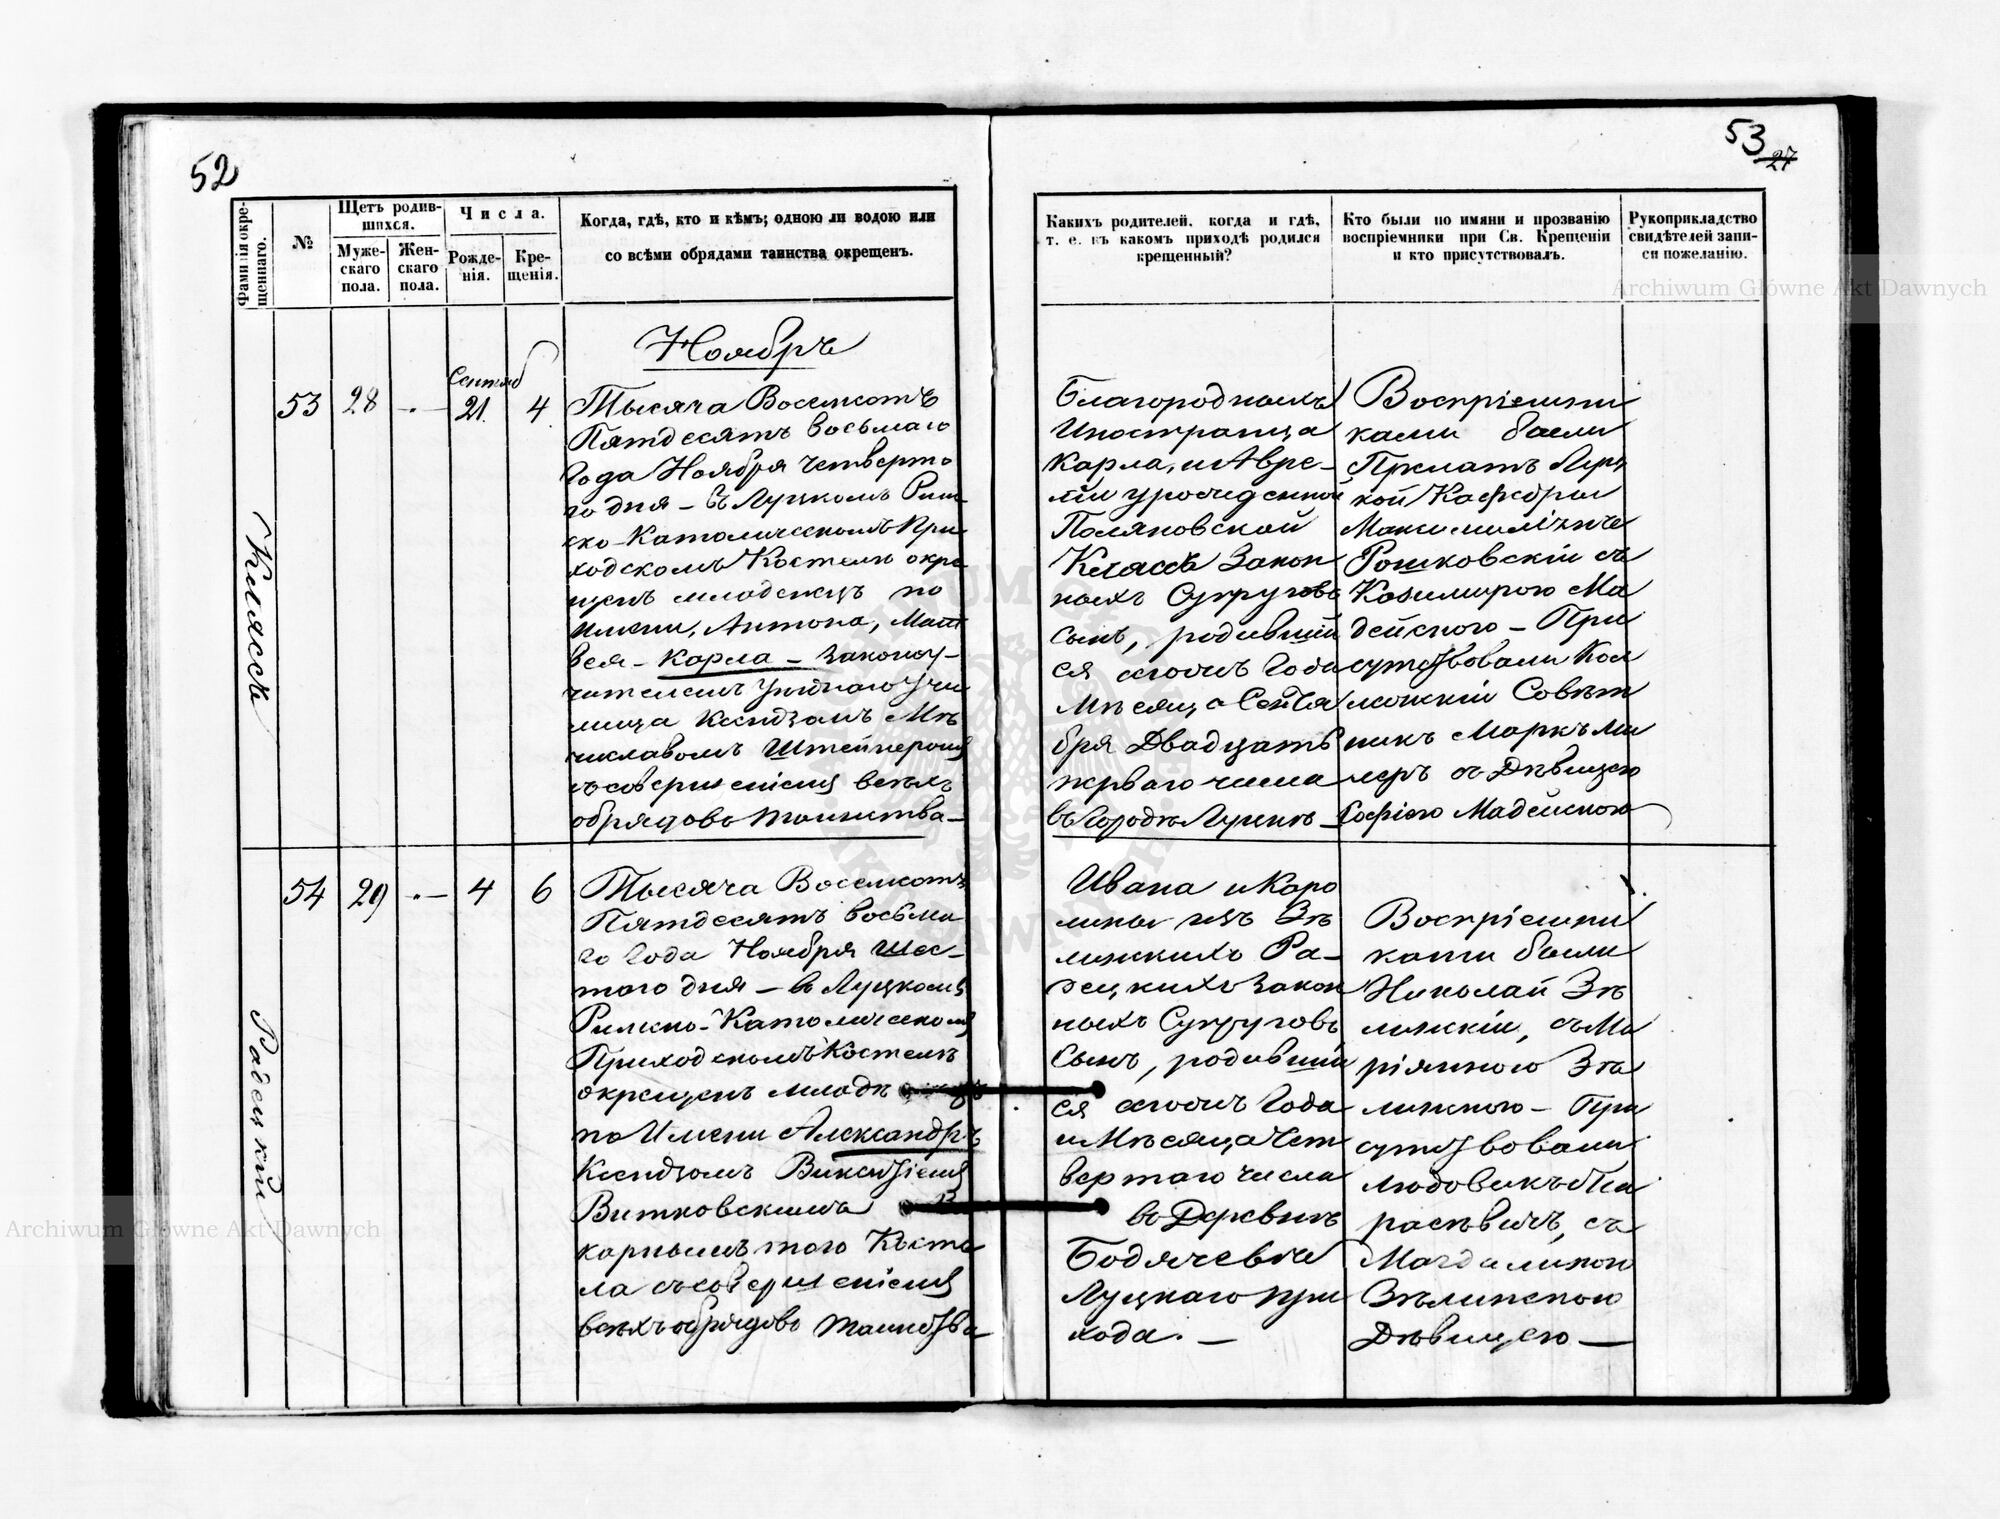 52
53
27
Фамилія окре-
щеннаго.
№
Щетъ родив-
шихся.
Муже-
скаго
пола.
Жен-
скаго
пола.
Числа.
Рожде-
нія.
Кре-
щенія.
Когда, гдѣ, кто и кѣмъ; одною ли водою или
со всѣми обрядами таинства окрещенъ.
Какихъ родителей, когда и гдѣ,
т. е. въ какомъ приходѣ родился
крещенный?
Кто были по имяни и прозванію
воспріемники при Св. Крещеніи
и кто присутствовалъ.
Рукоприкладство
свидѣтелей запи-
си пожеланію.
Ноябрь
Клясси
53
28
Сентяб
21.
4
Тысяча Восемсотъ
Пятдесятъ восьмаго
года Ноября четверта
го дня – въ Луцкомъ Рим
ско-Католическомъ При
ходскомъ Костелѣ окре
щенъ младенецъ по
имени, Антона, Мат
вея – Карла – Законоу-
чителемъ Уѣзднаго Учи
лища Ксендзомъ Мѣ
числавомъ Штейнеромъ
съ совершеніемъ всѣхъ
обрядовъ таинства –
Благородныхъ
Иностранца
Карла, и Авре-
ліи урожденной
Поляновской
Клясси Закон
ныхъ Супруговъ
сынъ, родивший
ся сегожъ года
Мѣсяца Сентя
бря Двадцать
перваго числа
въ Городѣ Луцкѣ –
Воспріемни
ками были
Прелатъ Луц
кой Кафедры
Максимиліянъ
Рошковскій съ
Казимирою Ма
дейскою – При
сутствовали Кол
лежскій Совѣт
никъ Маркъ Ми
леръ съ Дѣвицею
Софіею Мадейскою
Радецкій
54
29
4
6
Тысяча Восемсотъ
Пятдесятъ восьма
го года Ноября шес-
таго дня – въ Луцкомъ
Римско-Католическомъ
Приходскомъ Костелѣ
окрещенъ младе
по Имени Александръ
Ксендзомъ Викентіемъ
Витковскимъ Ви
карнымъ того Косте
ла съ совершеніемъ
всѣхъ обрядовъ таинства
Ивана и Каро
лины изъ Зѣ
линскихъ Ра-
децкихъ закон
ныхъ Супруговъ
Сынъ, родивший
ся сегожъ года
и Мѣсяца Чет
вертаго числа
въ Деревнѣ
Бодячевѣ
Луцкаго при
хода. –
Воспріемни
ками были
Николай Зѣ
линскій, съ Ма
ріянною Зѣ
линскою – При
сутствовали
Людовикъ
съ
Магдалиною
Зѣлинскою
Дѣвицею –
Archiwum Główne Akt Dawnych
Archiwum Główne Akt Dawnych